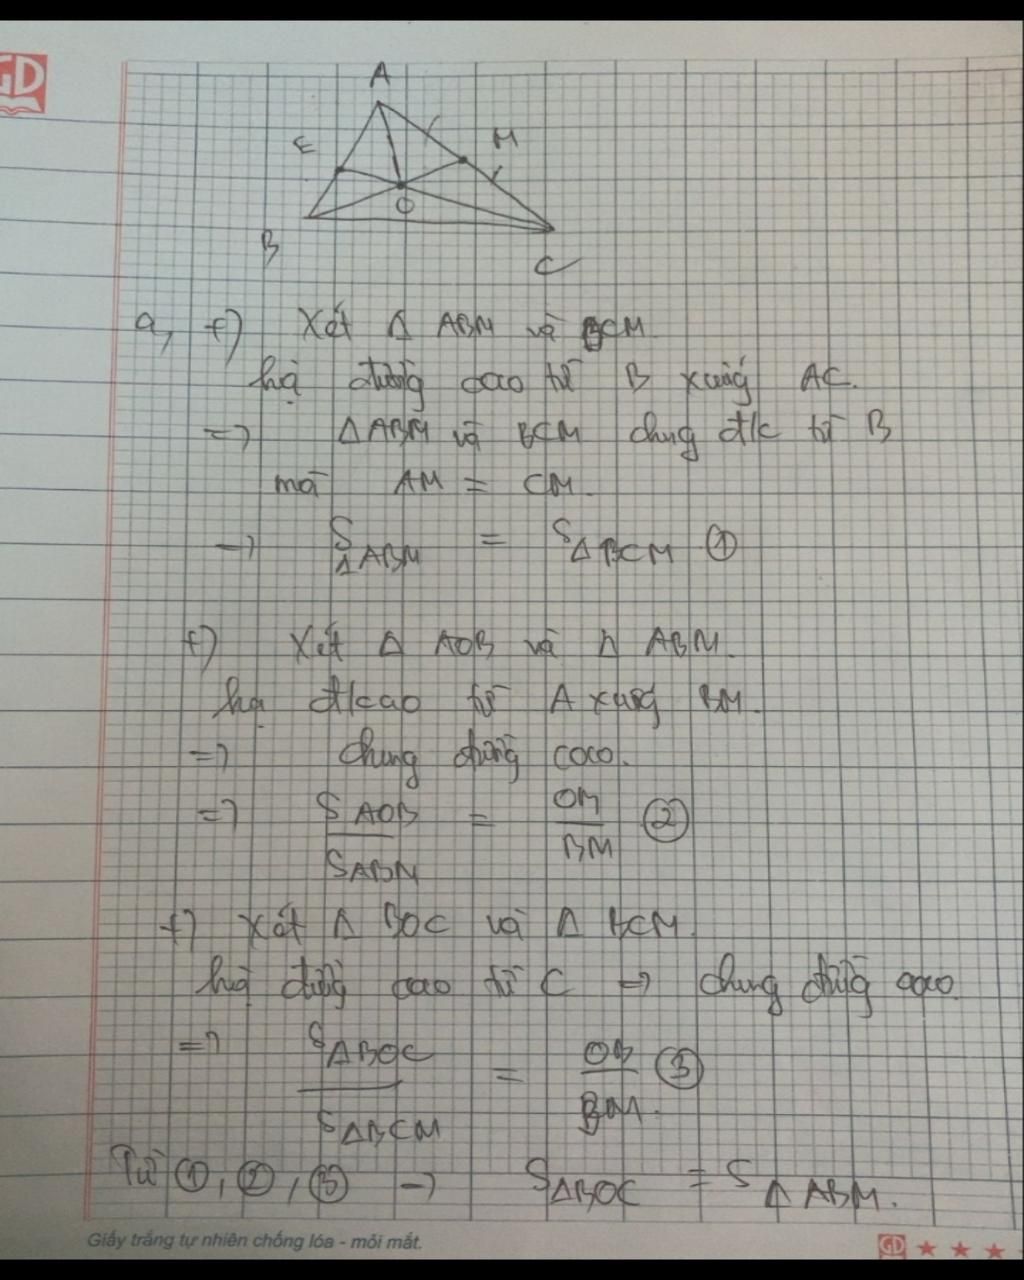 GD
A
E
M
O
B
C
a, +) Xét Δ ABM và BCM.
hạ đường cao từ B xuống AC.
=> ΔABM và BCM chung đ/c từ B
mà AM = CM.
=> SΔABM = SΔBCM ①
+) Xét Δ AOB và Δ ABM.
hạ đ/cao từ A xuống BM.
=> chung đường cao.
=> SAOB / SABM = OM / BM ②
+) Xét Δ BOC và Δ BCM.
hạ đường cao từ C => chung đường cao.
=> SΔBOC / SΔBCM = OB / BM. ③
Từ ①, ②, ③ => SΔBOC = SΔABM.
Giấy trắng tự nhiên chống lóa - mỏi mắt.
GD